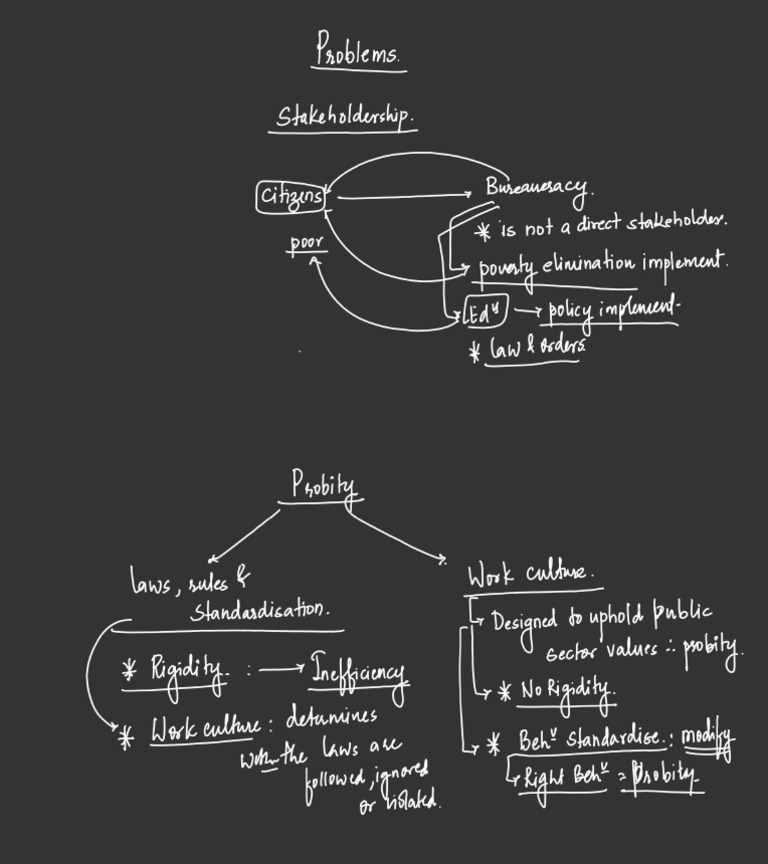 Problems.
Stakeholdership.
Citizens
Bureaucracy.
* is not a direct stakeholder.
poor
poverty elimination implement.
Edu → policy implement.
* law & orders
Probity
laws, rules &
Standardisation.
* Rigidity. : → Inefficiency
* Work culture : determines
the laws are
followed, ignored
or violated.
Work culture.
Designed to uphold public
sector values ∴ probity.
* No Rigidity.
* Behv Standardise. : modify
Right Behv = Probity